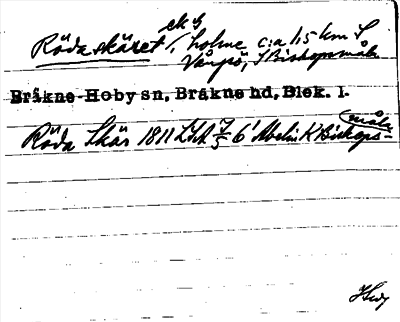 Röda skäret, holme c:a 1,5 km S
Vångsö, S Biskopsmåla
Bräkne-Hoby sn, Bräkne hd, Blek. l.
Röda Skär 1811 LSA 6 Abelin K Biskops-
måla